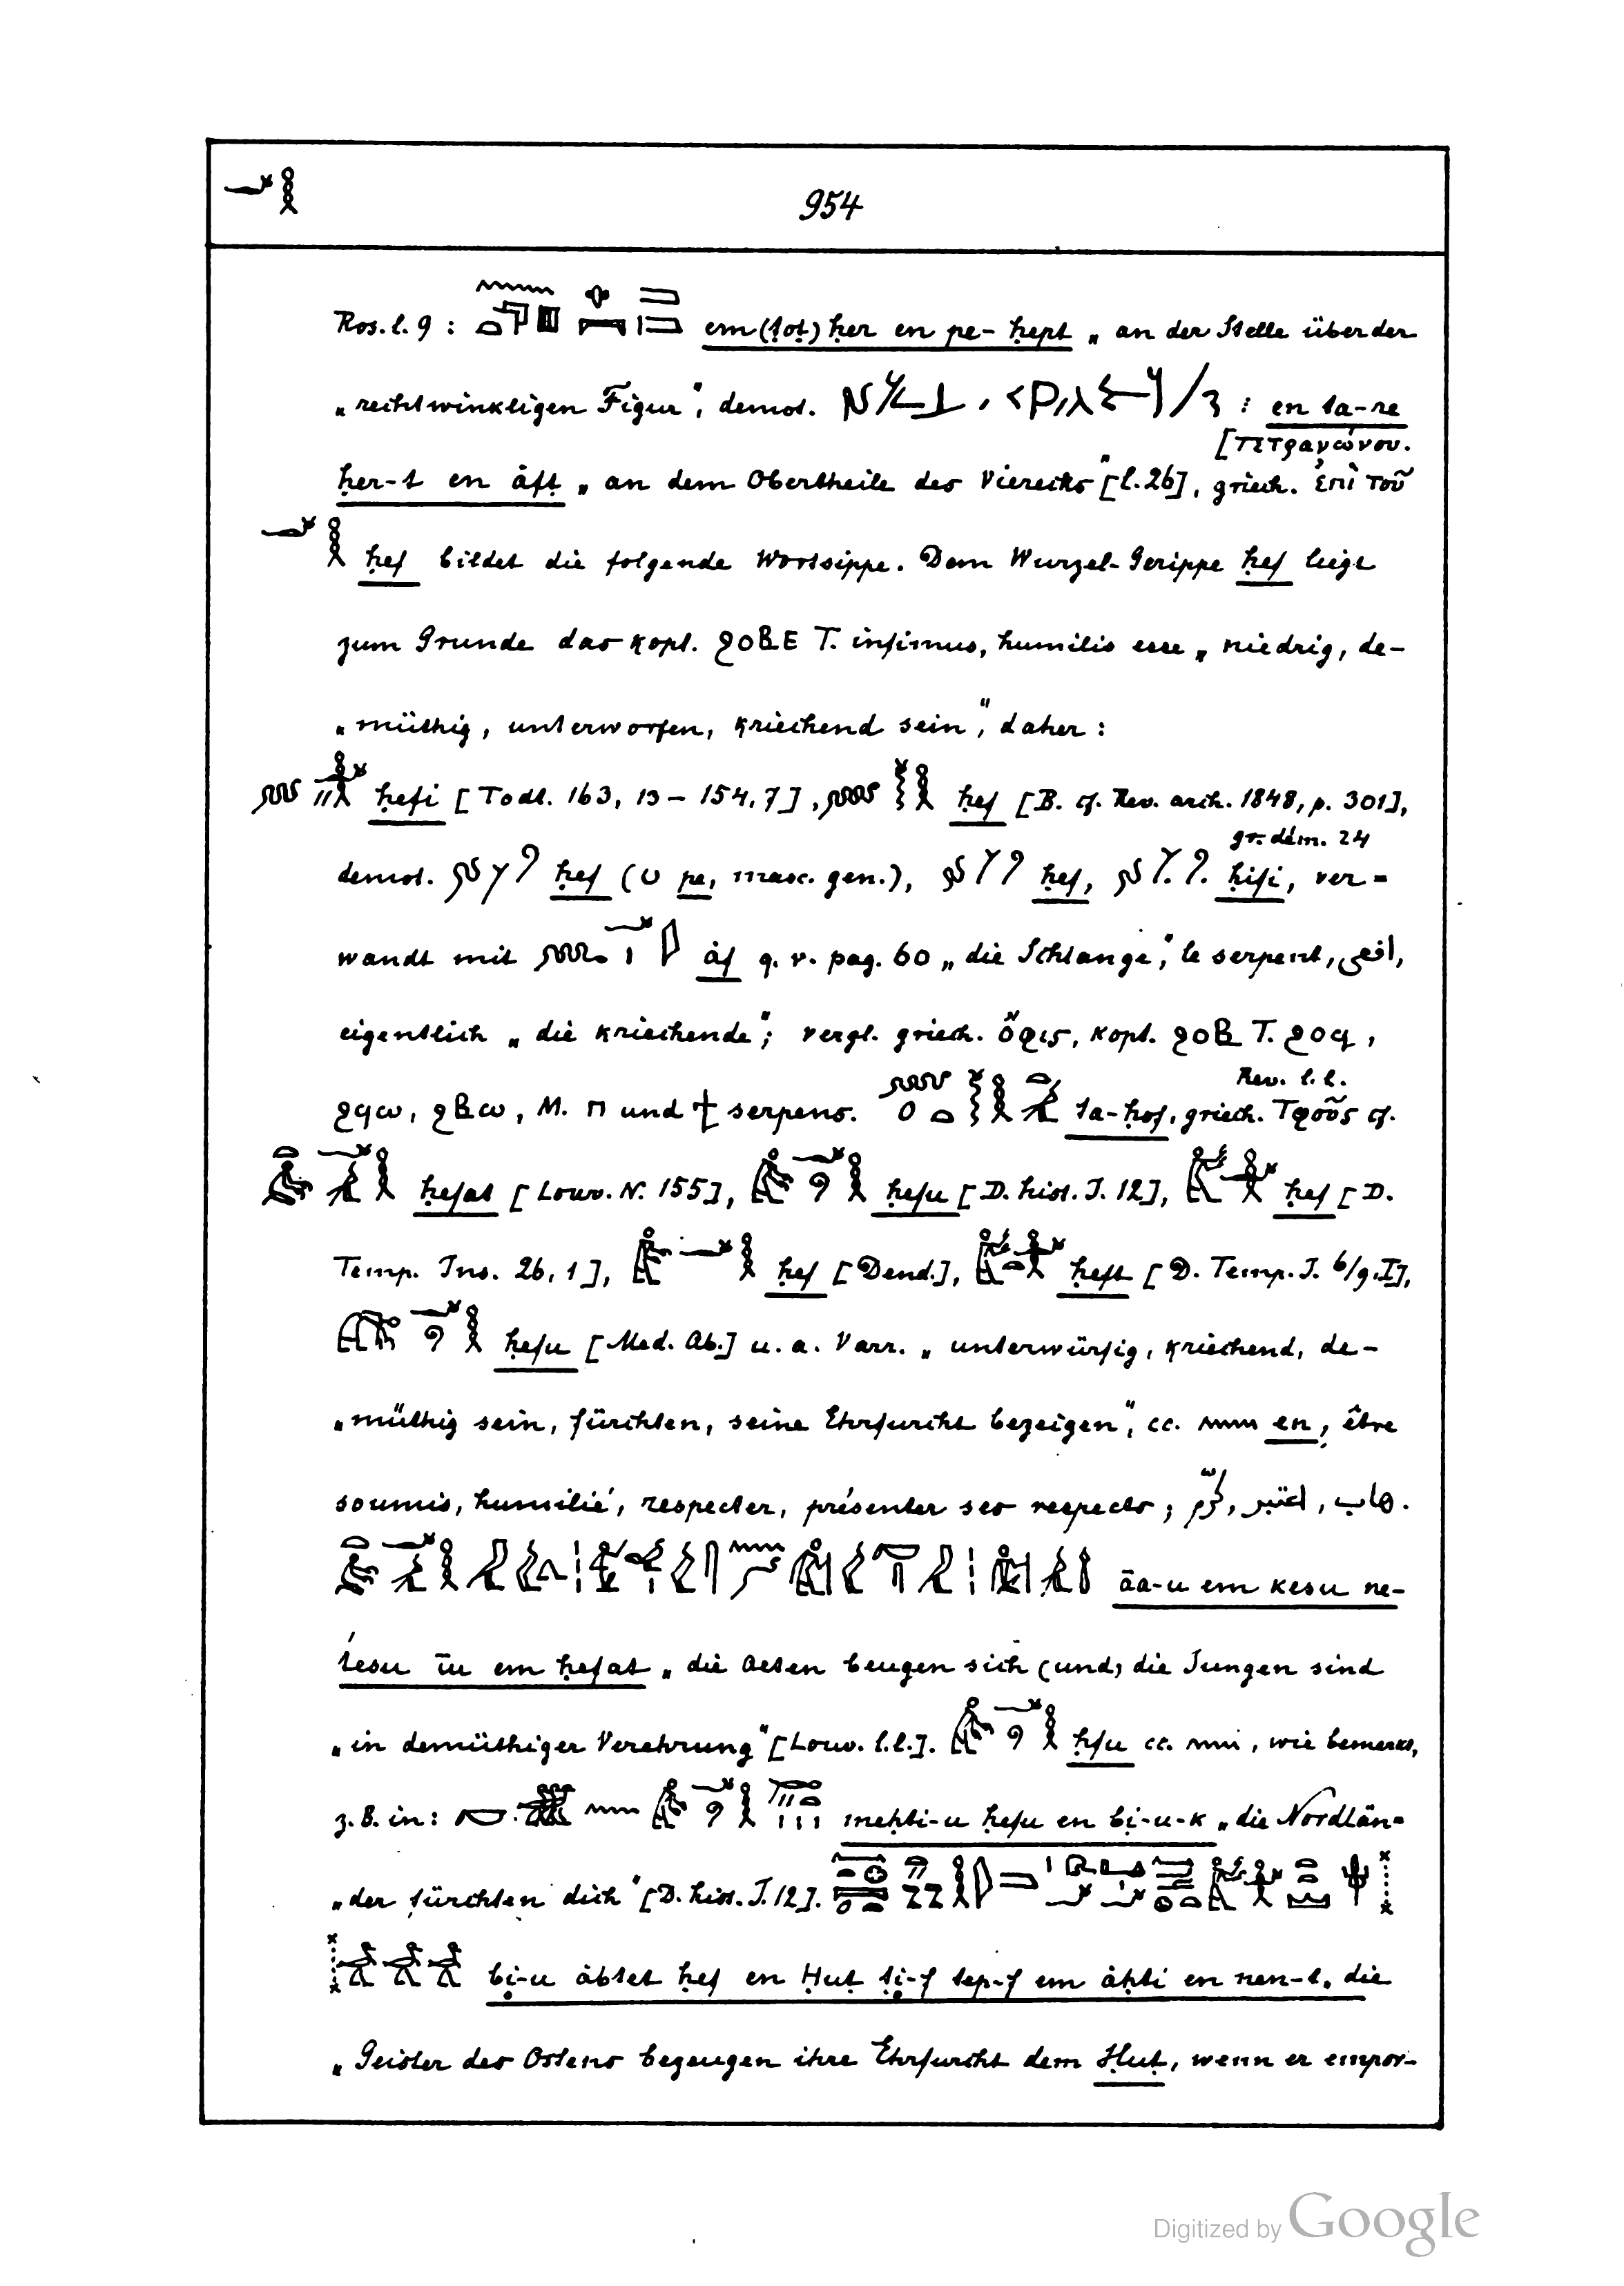 954
Ros. l. 9 : em (ṭoṭ) ḥer en pe-ḥepṭ „an der Stelle über der
„rechtwinkligen Figur", demot. : en ta-re
[τετραγώνου.
ḥer-t en àfṭ „an dem Obertheile des Vierecks" [l. 26], griech. ἐπὶ τοῦ
ḥef bildet die folgende Wortsippe. Dem Wurzel-Gerippe ḥef liegt
zum Grunde das kopt. ϩⲟⲃⲉ T. infimus, humilis esse „niedrig, de-
„müthig, unterworfen, kriechend sein", daher :
ḥefi [Todt. 163, 13 – 154, 7], ḥef [B. cf. Rev. arch. 1848, p. 301],
gr. dém. 24
demot. ḥef ( pe, masc. gen.), ḥef, ḥifi, ver=
wandt mit àf q. v. pag. 60 „die Schlange", le serpent, افعى,
eigentlich „die kriechende"; vergl. griech. ὄφις, kopt. ϩⲟⲃ T. ϩⲟϥ,
Rev. l. l.
ϩϥⲱ, ϩⲃⲱ, M. ⲡ und ϯ serpens. ta-ḥof, griech. Τφοῦς cf.
ḥefat [Louv. N. 155], ḥefu [D. hist. I. 12], ḥef [D.
Temp. Ins. 26, 1], ḥef [Dend.], ḥeft [D. Temp. I. 6/9. I],
ḥefu [Med. Ab.] u. a. Varr. „unterwürfig, kriechend, de-
„müthig sein, fürchten, seine Ehrfurcht bezeigen", cc. en, être
soumis, humilié, respecter, présenter ses respects; هاب, اعتبر, كرّم.
āa-u em kesu ne-
t́esu īu em ḥefat „die Alten beugen sich (und) die Jungen sind
„in demüthiger Verehrung" [Louv. l. l.]. ḥfu cc. , wie bemerkt,
z. B. in : meḥti-u ḥefu en bi̯-u-k „die Nordlän=
„der fürchten dich" [D. hist. I. 12].
bi̯-u àbtet ḥef en Ḥuṭ ṭi̯-f tep-f em àḥti en nen-t, die
„Geister des Ostens bezeugen ihre Ehrfurcht dem Ḥuṭ, wenn er empor-
Digitized by Google